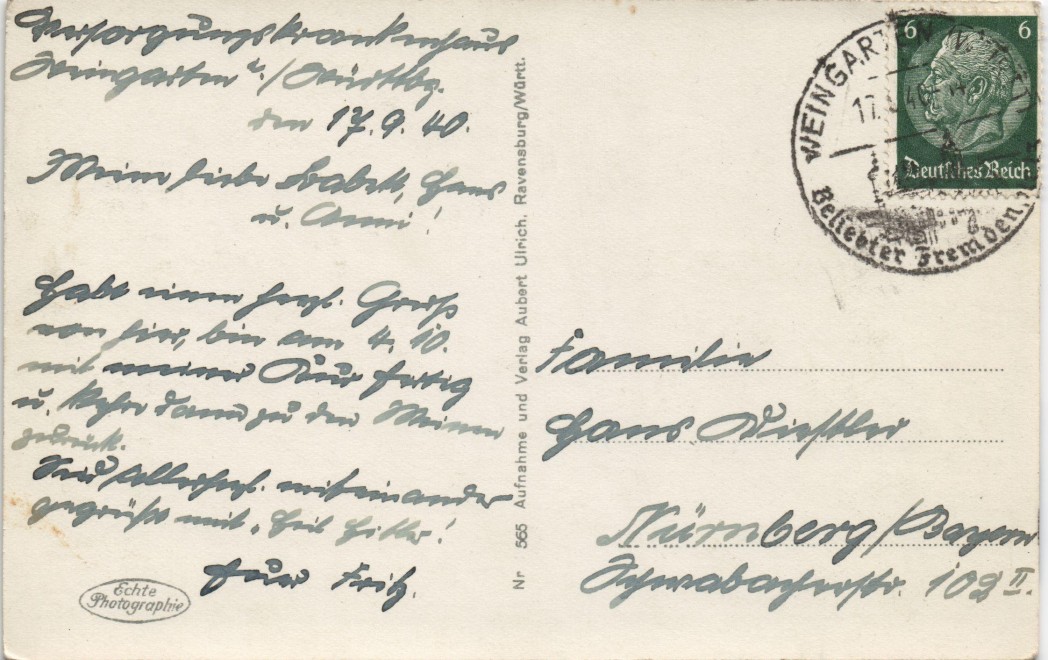 Versorgungskrankenhaus
Weingarten /Württbg.
den 17.9.40.
Meine liebe Babett, Hans
u. Anni!
Habt einen herzl. Gruß
von hier, bin am 4.10.
mit meiner Kur fertig
u. kehre dann zu den Meinen
zurück.
Seid allerherzl. miteinander
gegrüßt mit „Heil Hitler!
Euer Fritz.
Echte
Photographie
Nr 565 Aufnahme und Verlag Aubert Ulrich, Ravensburg/Württ.
WEINGARTEN (WÜRTT)
Beliebter Fremden
6 6
Deutsches Reich
Familie
Hans
Nürnberg/Bayern
Schwabacherstr. 102 II.